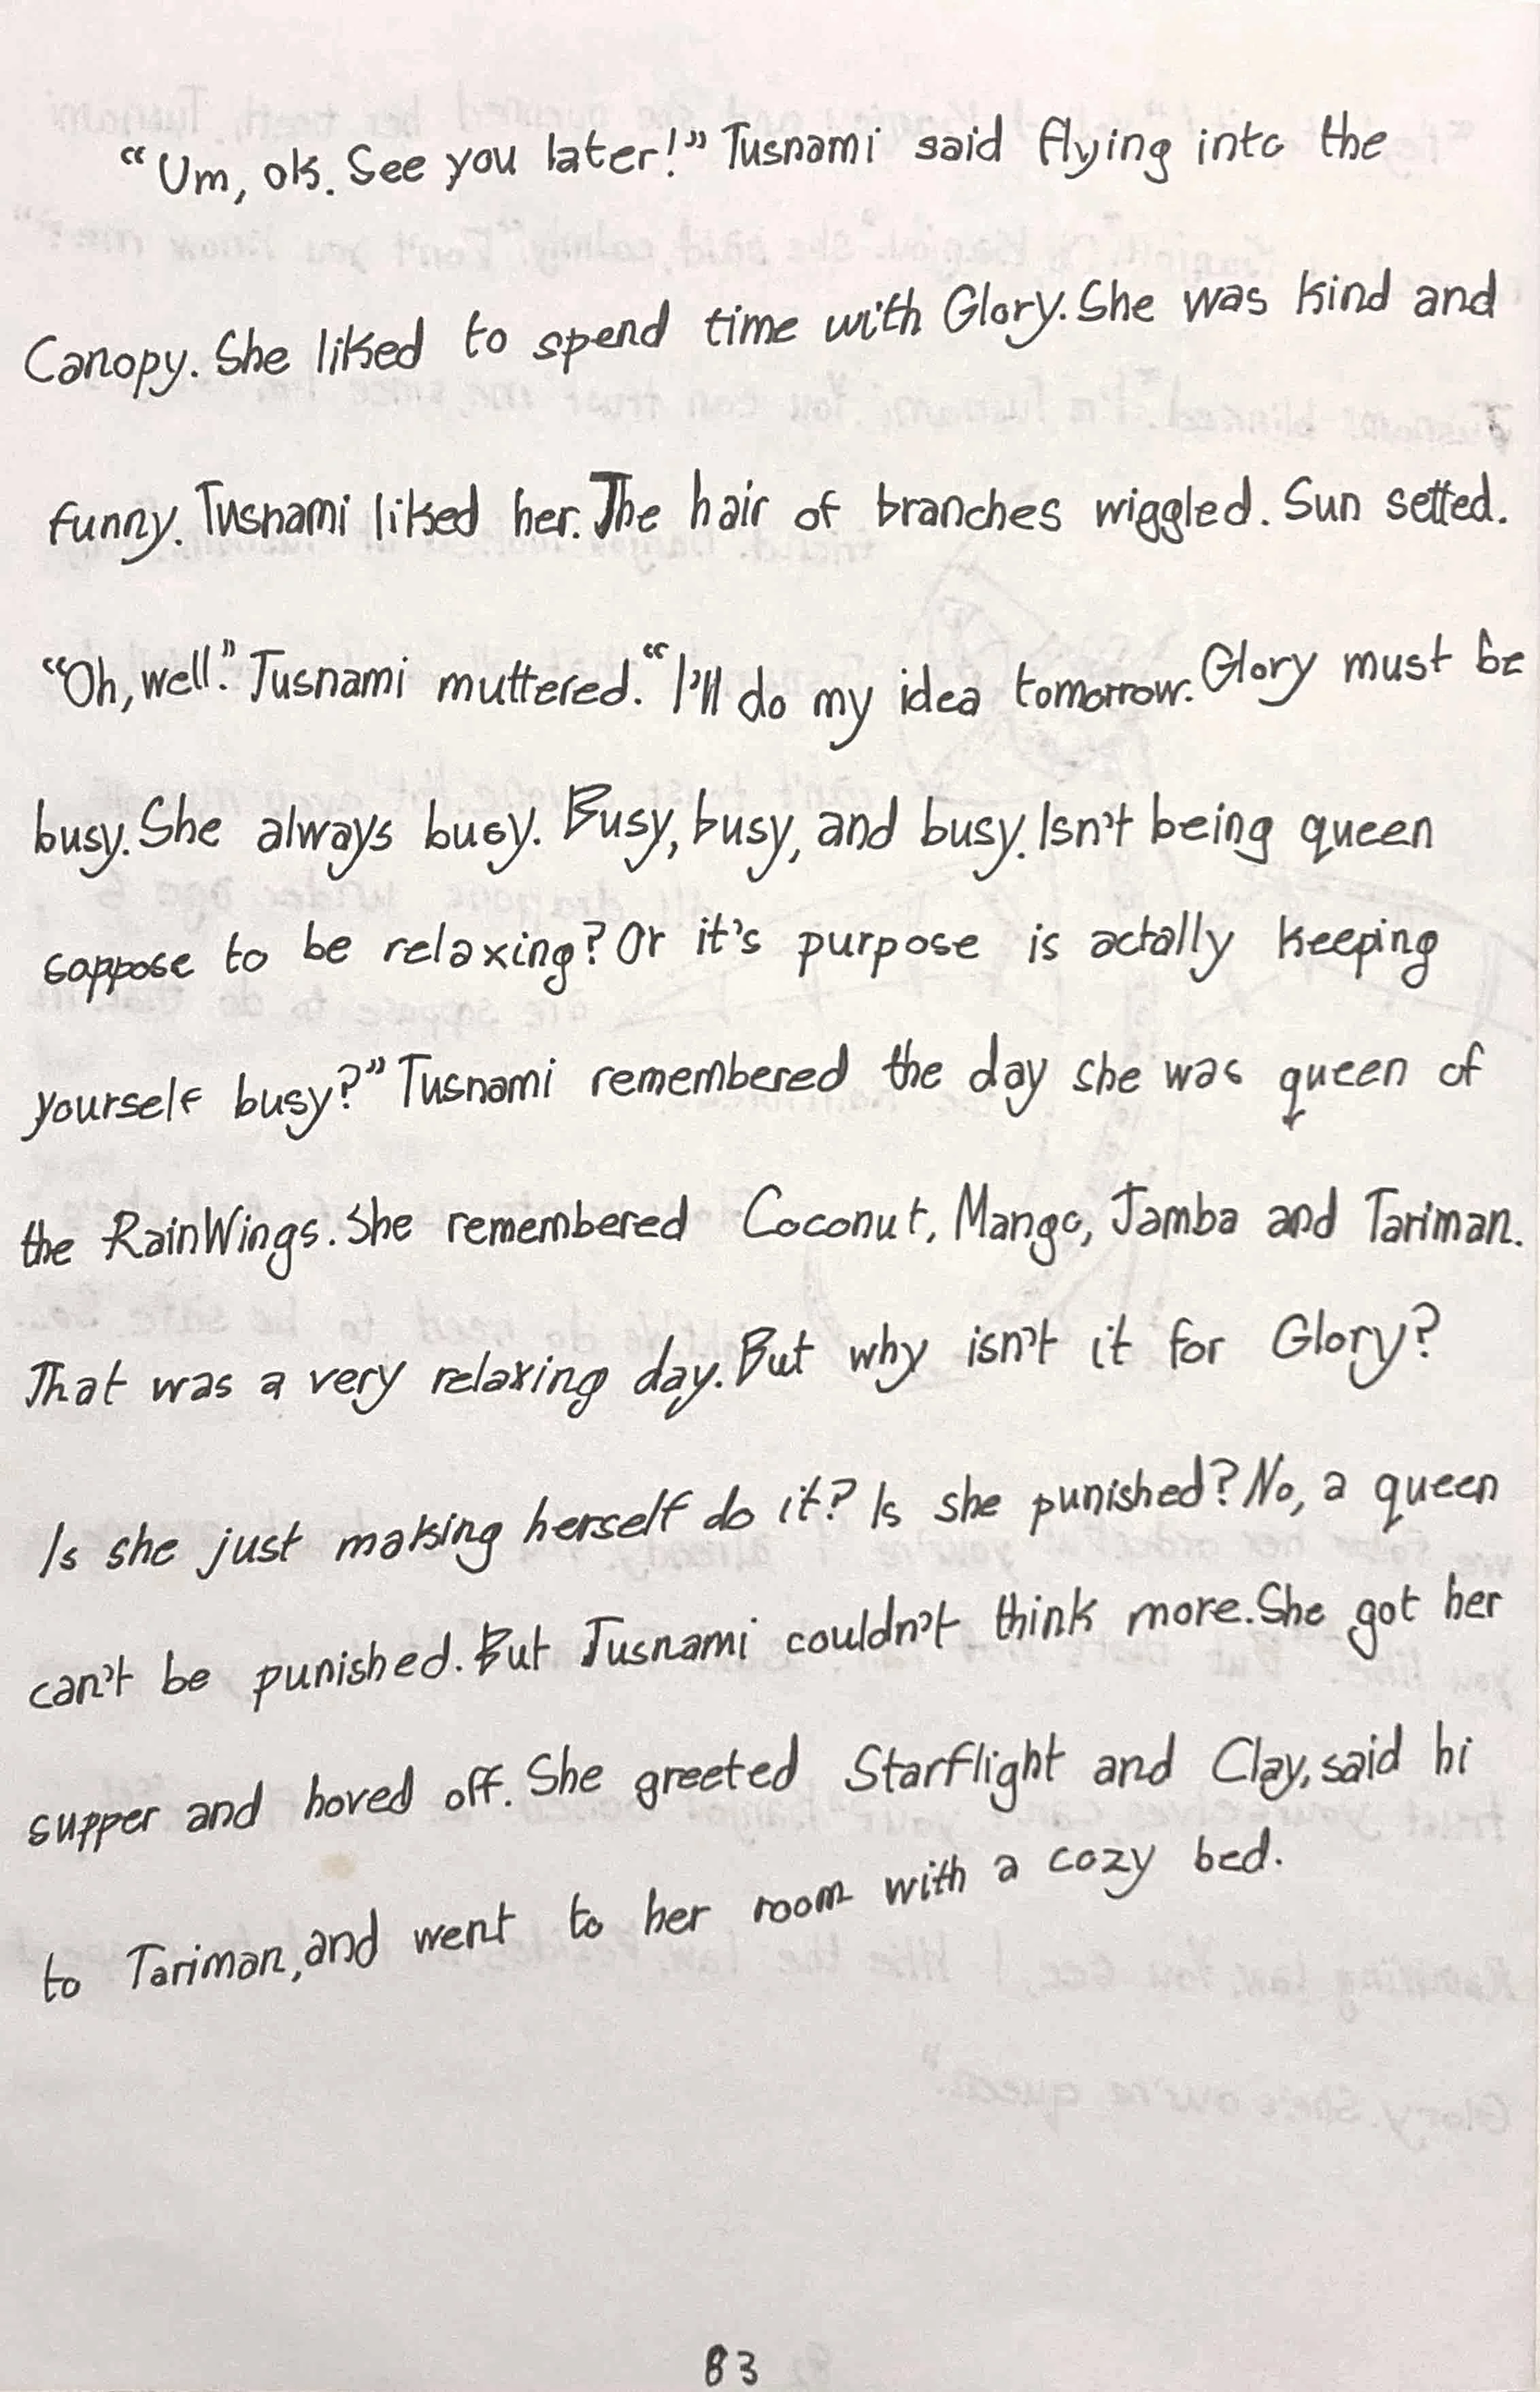 “Um, ok. See you later!” Tusnami said flying into the
Canopy. She liked to spend time with Glory. She was kind and
funny. Tusnami liked her. The hair of branches wiggled. Sun setted.
“Oh, well.” Tusnami muttered. “I’ll do my idea tomorrow. Glory must be
busy. She always busy. Busy, busy, and busy. Isn’t being queen
soppose to be relaxing? Or it’s purpose is actally keeping
yourself busy?” Tusnami remembered the day she was queen of
the RainWings. She remembered Coconut, Mango, Jamba and Tariman.
That was a very relaxing day. But why isn’t it for Glory?
Is she just making herself do it? Is she punished? No, a queen
can’t be punished. But Tusnami couldn’t think more. She got her
supper and hoved off. She greeted Starflight and Clay, said hi
to Tariman, and went to her room with a cozy bed.
83